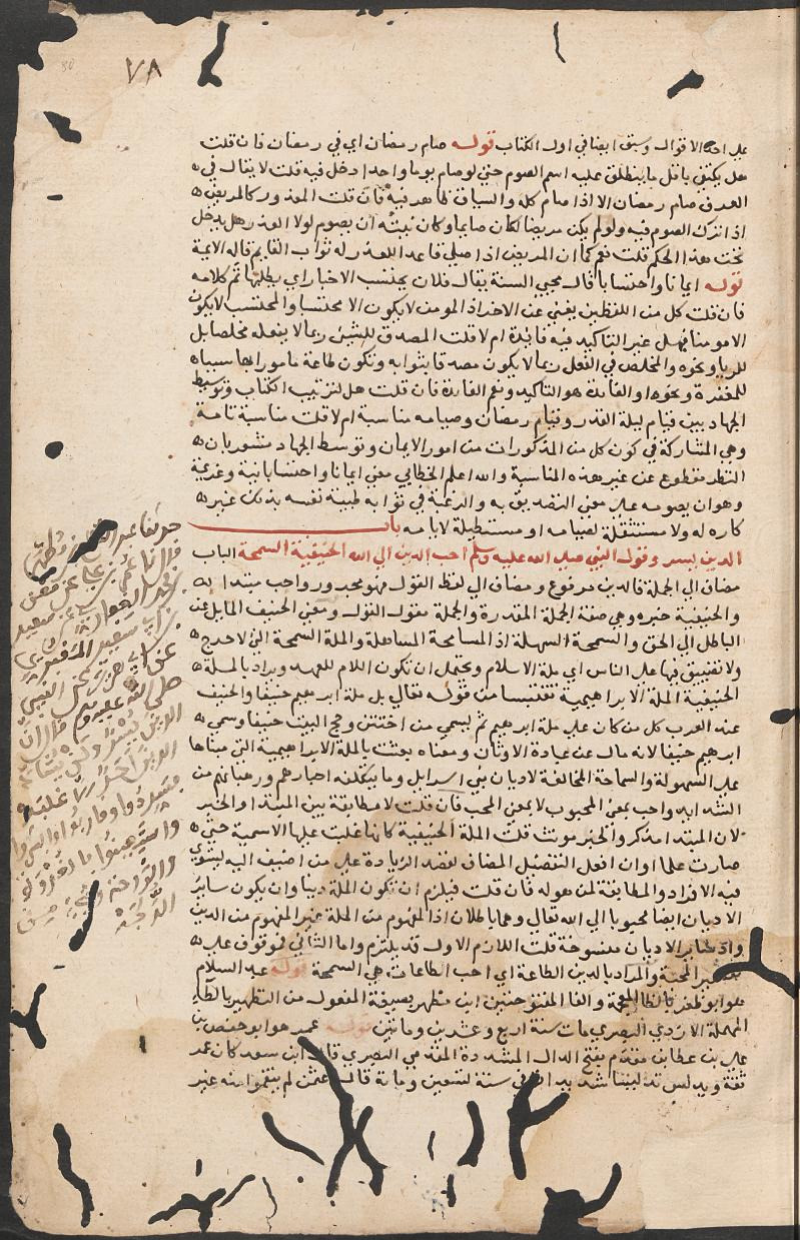 ٧٨
على احد الاقوال وسبق ايضا في اول الكتاب قوله صام رمضان اي في رمضان فان قلت
هل يكتفى باقل ما ينطلق عليه اسم الصوم حتى لو صام يوما واحدا دخل فيه قلت لا يقال في
العرف صام رمضان الا اذا صام كله والسياق ظاهر فيه فان قلت المعذور كالمريض
اذا ترك الصوم فيه ولو لم يكن مريضا لكان صايما وكان نيته ان يصوم لولا العذر هل يدخل
تحت هذا الحكم قلت نعم كما ان المريض اذا صلى قاعدا للعذر له ثواب القايم قاله الايمة
قوله ايمانا واحتسابا قال محيي السنة يقال فلان يحتسب الاخبار اي يطلبها تم كلامه
فان قلت كل من اللفظين يغني عن الاخر اذ المومن لا يكون الا محتسبا والمحتسب لا يكون
الا مومنا فهل غير التاكيد فيه فائدة ام لا قلت المصدق للشيئ ربما لا يفعله مخلصا بل
للريا ونحوه والمخلص في الفعل ربما لا يكون مصدقا بثوابه وبكون طاعة مامورا بها سببا
للمغفرة ونحوه او الفايدة هو التاكيد ونعم الفايدة فان قلت هل لترتيب الكتاب وتوسيط
الجهاد بين قيام ليلة القدر وقيام رمضان وصيامه مناسبة ام لا قلت مناسبة تامة
وهي المشاركة في كون كل من المذكورات من امور الايمان وتوسط الجهاد مشعر بان
النظر مقطوع عن غير هذه المناسبة والله اعلم الخطابي معنى ايمانا واحتسابا نية وعزيمة
وهو ان يصومه على معنى التصديق به والرغبة في ثوابه طيبة نفسه بذلك غير
كاره له ولا مستثقلة لصيامه او مستطيلة لايامه باب
الدين يسر وقول النبي صلى الله عليه وسلم احب الدين الى الله الحنيفية السمحة الباب
مضاف الى الجملة فالدين مرفوع ومضاف الى لفظ القول فهو مجرور واحب مبتدا
والحنيفية خبره وهي صفة الجملة المقدرة والجملة مقول القول ومعنى الحنيف المايل عن
الباطل الى الحق والسمحة السهلة اذ المسامحة المساهلة والملة السمحة التي لا حرج
ولا تضييق فيها على الناس اي ملة الاسلام ويحتمل ان تكون اللام للعهد ويراد بالملة
الحنيفية الملة الابراهيمية مقتبسا من قوله تعالى بل ملة ابرهيم حنيفا والحنيف
عند العرب كل من كان على ملة ابرهيم ثم يسمى من اختتن وحج البيت حنيفا وسمي
ابرهيم حنيفا لانه مال عن عبادة الاوثان ومعناه بعثت بالملة الابراهيمية التي مبناها
على السهولة والسماحة المخالفة لاديان بني اسرايل وما يتكلفه احبارهم ورهبانهم من
الشدايد واحب بمعنى المحبوب لا بمعنى المحب فان قلت لا مطابقة بين المبتدا والخبر
لان المبتدا مذكر والخبر مونث قلت الملة الحنيفية كانها غلبت عليها الاسمية حتى
صارت علما او ان افعل التفضيل المضاف لقصد الزيادة على من اضيف اليه يستوي
فيه الافراد والمطابقة لمن هو له فان قلت فيلزم ان تكون الملة دينا وان يكون ساير
الاديان ايضا محبوبا الى الله تعالى وهما باطلان اذ المفهوم من الملة غير المفهوم من الدين
واذ ساير الاديان منسوخة قلت اللازم الاول قد يلتزم واما الثاني فموقوف على
تفسير المحبة والمراد بالدين الطاعة اي احب الطاعات هي السمحة قوله عبد السلام
هو ابو ظفر بالظا المعجمة والفا المفتوحتين ابن مطهر بصيغة المفعول من التطهير بالطا
المهملة الازدي البصري مات سنة اربع وعشرين وماتين قوله عمر هو ابو حفص بن
على بن عطا بن مقدم بفتح الدال المشددة المقدمي البصري قال ابن سعد كان عمر
ثقة ويدلس تدليسا شديدا في سنة تسعين وماية قال عفن لم ينقموا منه غير
حدثنا عبد السلام بن مطهر
قال انا عمر بن علي عن معن
بن محمد الغفاري عن سعيد
بن ابي سعيد المقبري
عن ابي هريرة عن النبي
صلى الله عليه وسلم قال ان
الدين يسر ولن يشاد
الدين احد الا غلبه
فسددوا وقاربوا وابشروا
واستعينوا بالغدوة
والروحة وشيء من
الدلجة